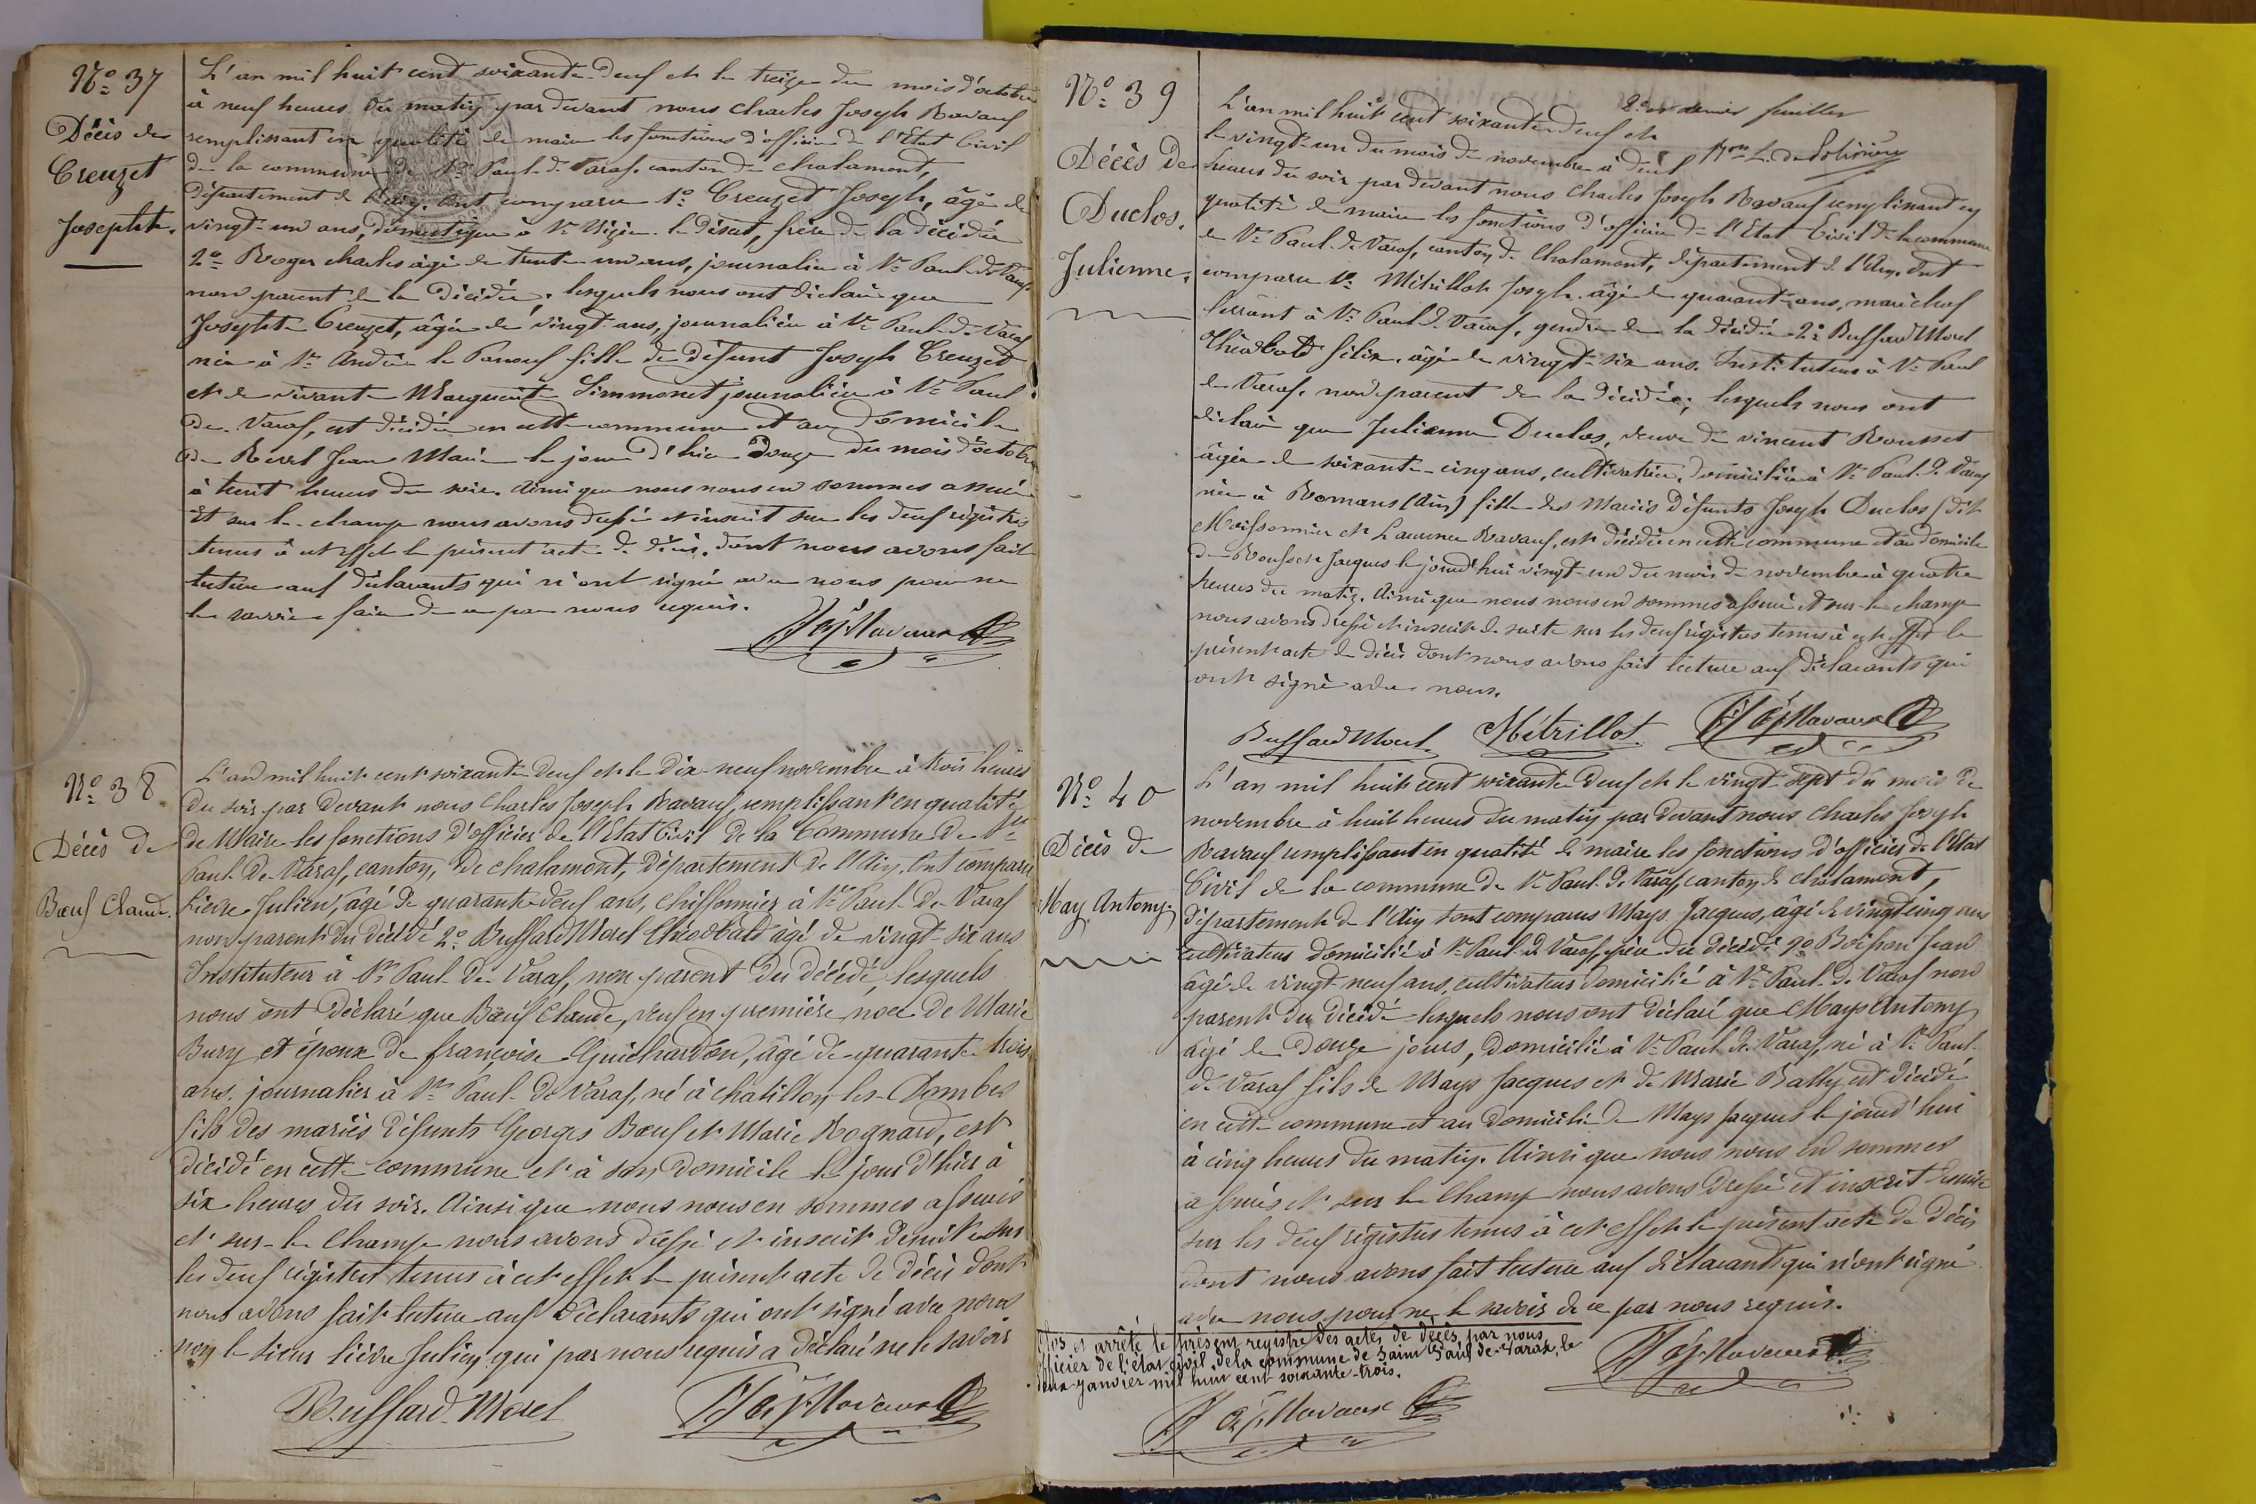 N° 37
Décès de
Creuzet
Josephte.
L'an mil huit cent soixante-deux et le treize du mois d'octobre
à neuf heures du matin par devant nous Charles Joseph Ravaux
remplissant en qualité de maire les fonctions d'officier de l'Etat Civil
de la commune de St Paul-de-Varax, canton de Chalamont,
département de l'Ain. Ont comparu 1° Creuzet Joseph, âgé de
vingt-un ans, domestique à St Nizier-le-désert, frère de la décédée
2° Roger Charles âgé de trente un ans, journalier à St Paul-de-Varax
non parent de la décédée, lesquels nous ont déclaré que
Josephte Creuzet, âgée de vingt ans, journalière à St Paul-de-Varax
née à St André le Panoux fille de défunt Joseph Creuzet
et de vivante Marguerite Simmonet journalière à St Paul
de Varax, est décédée en cette commune et au domicile
de Revel Jean Marie le jour d'hier Douze du mois d'octobre
à huit heures du soir. Ainsi que nous nous en sommes assuré
Et sur le champ nous avons dressé et inscrit sur les deux régistres
tenus à cet effet le présent acte de décès, dont nous avons fait
lecture aux déclarants qui n'ont signé avec nous pour ne
le savoir faire de ce par nous requis.
Ch Jph Ravaux
N° 38
Décès de
Bœuf Claude.
L'an mil huit cent soixante deux et le Dix-neuf novembre à trois heures
du soir par devant nous Charles Joseph Ravaux, remplissant en qualité
de Maire les fonctions d'officier de l'Etat Civil de la Commune de St
Paul-de-Varax, canton, de Chalamont, Département de l'Ain. Ont comparu
Lièvre Julien, âgé de quarante deux ans, chiffonnier à St Paul-de-Varax
non parent du décédé 2° Buffard Morel Théodbald âgé de vingt-six ans
Instituteur à St Paul-de-Varax, non parent du décédé, lesquels
nous ont déclaré que Bœuf Claude, veuf en première noce de Marie
Bury et époux de françoise Guichardon, âgé de quarante trois
ans, journalier à St Paul-de-Varax, né à Chatillon-les-Dombes
fils des mariés défunts Georges Bœuf et Marie Rognard, est
décédé en cette commune et à son domicile le jour d'hier à
six heures du soir. Ainsi que nous nous en sommes assurés
et sur-le champ nous avons dressé et inscrit de suite sur
les deux régistres tenus à cet effet le présent acte de décès dont
nous avons fait lecture aux déclarants qui ont signé avec nous
non le sieur lièvre Julien qui par nous requis a déclaré ne le savoir
Buffard-Morel
Ch Jph Ravaux
N° 39
Décès de
Duclos.
Julienne.
2e et dernier feuillet
L'an mil huit cent soixante deux et
le vingt-un du mois de novembre à deux
heures du soir par devant nous Charles Joseph Ravaux remplissant en
qualité de maire les fonctions d'officier de l'Etat Civil de la commune
de St Paul-de-Varax, canton de Chalamont, département de l'Ain. Ont
comparu 1° Mitrillot Joseph, âgé de quarante ans, maréchal
ferrant à St Paul-de-Varax, gendre de la décédée 2° Buffard Morel
Théodbald félix, âgé de vingt-six ans. Instituteur à St Paul
de Varax, non parent de la décédée; lesquels nous ont
déclaré que Julienne Duclos, veuve de vincent Rousset
âgée de soixante-cinq ans, cultivatrice, domiciliée à St Paul-de-Varax
née à Romans (Ain) fille des Mariés défunts Joseph Duclos (dit
Moissonnier et Laurence Ravaux, est décédée en cette commune et au domicile
de Rousset Jacques le jourd'hui vingt-un du mois de novembre à quatre
heures du matin. Ainsi que nous nous en sommes assuré et sur-le champ
nous avons dressé et inscrit de suite sur les deux régistres tenus à cet effet le
présent acte de décès dont nous avons fait lecture aux déclarants qui
ont signé avec nous.
Buffard Morel Métrillot Ch Jph Ravaux
N° 40
Décès de
May, Antony.
L'an mil huit cent soixante deux et le vingt-sept du mois de
novembre à huit heures du matin par devant nous Charles Joseph
Ravaux remplissant en qualité de maire les fonctions d'officier de l'Etat
Civil de la commune de St Paul-de-Varax, canton de Chalamont,
département de l'Ain sont comparus Mays Jacques, âgé de vingt cinq ans
cultivateur domicilié à St Paul-de-Varax, père du décédé 2° Boisson Jean
âgé de vingt-neuf ans, cultivateur domicilié à St Paul-de-Varax non
parent du décédé lesquels nous ont déclaré que Mays Antony
âgé de Douze jours, domicilié à St Paul-de-Varax, né à St Paul-
de-Varax fils de Mays Jacques et de Marie Bally, est décédé
en cette commune et au domicile de Mays Jacques le jourd'hui
à cinq heures du matin. Ainsi que nous nous en sommes
assurés et sur le Champ nous avons dressé et inscrit de suite
sur les deux régistres tenus à cet effet le présent acte de décès
dont nous avons fait lecture aux déclarants qui n'ont signé
avec nous pour ne le savoir de ce par nous requis.
Ch Jph Ravaux
Clos et arrêté le présent registre des actes de décès par nous
officier de l'état civil de la commune de Saint Paul-de-Varax, le
deux Janvier mil huit cent soixante-trois.
Ch Jph Ravaux